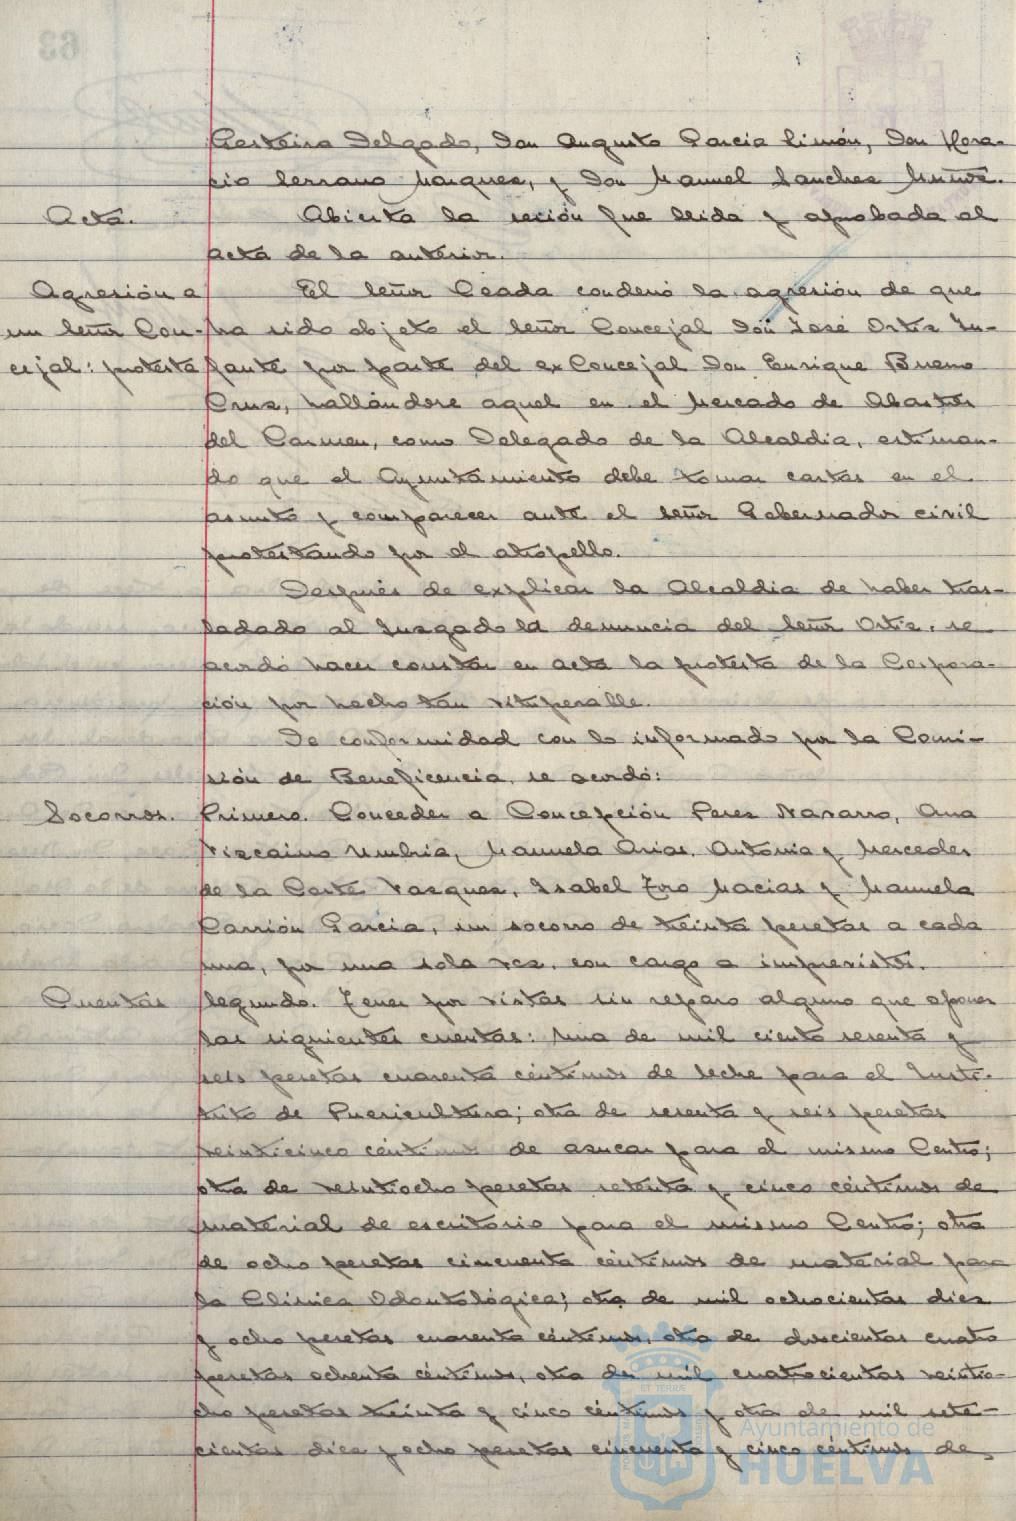 63
Garteira Delgado, Don Augusto Garcia Limón, Don Hora-
cio Serrano Marquez, y Don Manuel Sanchez Muñoz.
Acta.
Abierta la sesión fue leida y aprobada el
acta de la anterior.
Agresión a
un Señor Con-
cejal: protesta
El Señor Ceada condenó la agresión de que
ha sido objeto el Señor Concejal Don José Ortiz In-
fante por parte del exConcejal Don Enrique Bueno
Cruz, hallándose aquel en el Mercado de Abastos
del Carmen, como Delegado de la Alcaldia, estiman-
do que el Ayuntamiento debe tomar cartas en el
asunto y comparecer ante el señor Gobernador civil
protestando por el atropello.
Después de explicar la Alcaldia de haber tras-
ladado al Juzgado la denuncia del Señor Ortiz, se
acordó hacer constar en acta la protesta de la Corpora-
ción por hecho tan vituperable.
De conformidad con lo informado por la Comi-
sión de Beneficencia, se acordó:
Socorros.
Primero. Conceder a Concepción Perez Navarro, Ana
Vizcaino Umbria, Manuela Arias, Antonia y Mercedes
de la Corte Vazquez, Isabel Toro Macias y Manuela
Carrión Garcia, un socorro de treinta pesetas a cada
una, por una sola vez, con cargo a imprevistos.
Cuentas
Segundo. Tener por vistas sin reparo alguno que oponer
las siguientes cuentas: Una de mil ciento sesenta y
seis pesetas cuarenta céntimos de leche para el Insti-
tuto de Puericultura; otra de sesenta y seis pesetas
veinticinco céntimos de azucar para el mismo Centro;
otra de veintiocho pesetas setenta y cinco céntimos de
material de escritorio para el mismo Centro; otra
de ocho pesetas cincuenta céntimos de material para
la Clinica Odontológica; otra de mil ochocientas diez
y ocho pesetas cuarenta céntimos, otra de doscientas cuatro
pesetas ochenta céntimos, otra de mil cuatrocientas veintio-
cho pesetas treinta y cinco céntimos y otra de mil sete-
cientas diez y ocho pesetas cincuenta y cinco céntimos de
Ayuntamiento de
HUELVA